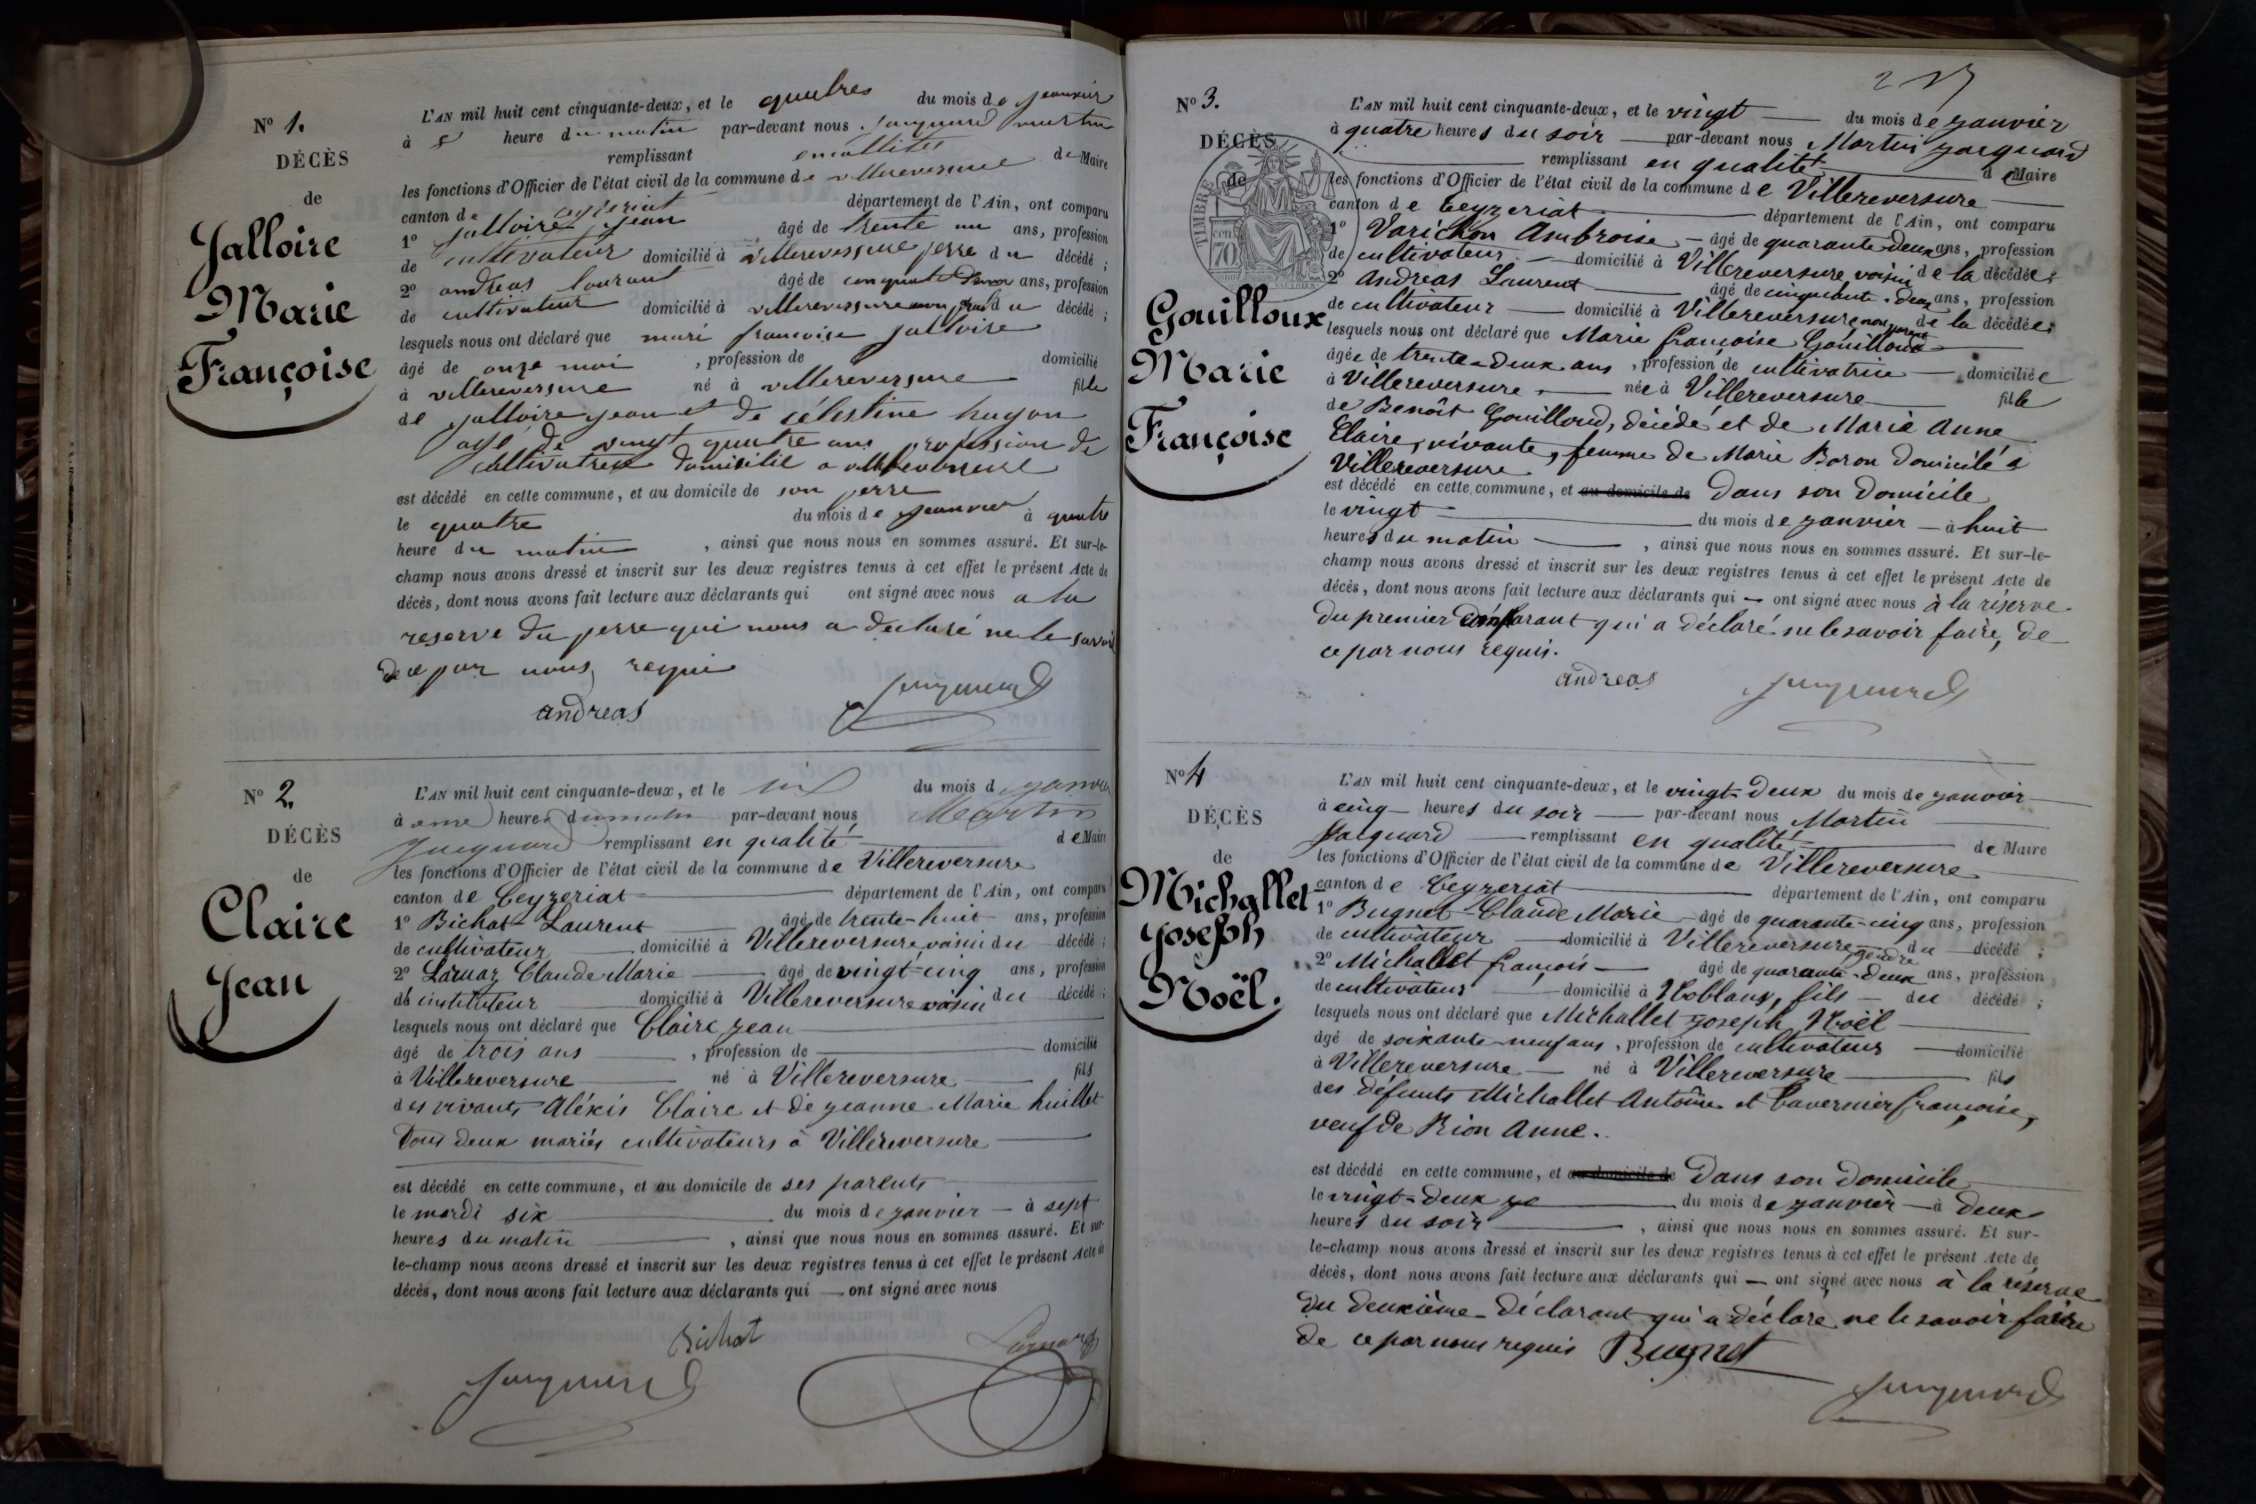 N° 1.
DÉCÈS
de
Jalloire
Marie
Françoise
L'AN mil huit cent cinquante-deux, et le quatres du mois de jeanvier
à 8 heure du matin par-devant nous jacquard martin
remplissant de Maire
les fonctions d'Officier de l'état civil de la commune de villereversure
canton de département de l'Ain, ont comparu
1° jalloire jean âgé de trente un ans, profession
de cultivateur domicilié à villereversure perre du décédé ;
2° andreas laurant âgé de cinquante deux ans, profession
de cultivateur domicilié à villereversure du décédé ;
lesquels nous ont déclaré que mari francoise jalloire
âgé de onze moi , profession de domicilié
à villereversure né à villereversure fille
de jalloire jean et de célestine hugon
age de vingt quatre ans profession de
cultivatrice domicilié a villereversure
est décédé en cette commune, et au domicile de son perre
le quatre du mois de jeanvier à quatre
heure du matin , ainsi que nous nous en sommes assuré. Et sur-le-
champ nous avons dressé et inscrit sur les deux registres tenus à cet effet le présent Acte de
décès, dont nous avons fait lecture aux déclarants qui ont signé avec nous a la
reserve du perre qui nous a declaré ne le savoir
de ce par nous requi
andreas jacquard
N° 2.
DÉCÈS
de
Claire
Jean
L'AN mil huit cent cinquante-deux, et le six du mois de janvier
à onze heures du matin par-devant nous Martin
Jacquard remplissant en qualité de Maire
les fonctions d'Officier de l'état civil de la commune de Villereversure
canton de Ceyzeriat département de l'Ain, ont comparu
1° Bichat Laurent âgé de trente-huit ans, profession
de cultivateur domicilié à Villereversure voisin du décédé ;
2° Larnaz Claude Marie âgé de vingt-cinq ans, profession
d' instituteur domicilié à Villereversure voisin du décédé ;
lesquels nous ont déclaré que Claire jean
âgé de trois ans , profession de domicilié
à Villereversure né à Villereversure fils
des vivants Aléxis Claire et de jeanne Marie huillet
tous deux mariés cultivateurs à Villereversure
est décédé en cette commune, et au domicile de ses parents
le mardi six du mois de janvier à sept
heures du matin , ainsi que nous nous en sommes assuré. Et sur-
le-champ nous avons dressé et inscrit sur les deux registres tenus à cet effet le présent Acte de
décès, dont nous avons fait lecture aux déclarants qui ont signé avec nous
Bichat Larnaz
jacquard
N° 3.
DÉCÈS
de
TIMBRE
70
Gouilloux
Marie
Françoise
L'AN mil huit cent cinquante-deux, et le vingt du mois de janvier
à quatre heures du soir par-devant nous Martin jacquard
remplissant en qualité de Maire
les fonctions d'Officier de l'état civil de la commune de Villereversure
canton de Ceyzeriat département de l'Ain, ont comparu
1° Varichon Ambroise âgé de quarante-deux ans, profession
de cultivateur domicilié à Villereversure voisin de la décédée ;
2° Andreas Laurent âgé de cinquante-deux ans, profession
de cultivateur domicilié à Villereversure non parent de la décédée ;
lesquels nous ont déclaré que Marie françoise Gouilloud
âgée de trente-deux ans , profession de cultivatrice domiciliée
à Villereversure née à Villereversure fille
de Benoît Gouilloud, décédé et de Marie Anne
Claire, vivante, femme de Marie Boron domicilé à
Villereversure
est décédé en cette commune, et au domicile de dans son domicile
le vingt du mois de janvier à huit
heures du matin , ainsi que nous nous en sommes assuré. Et sur-le-
champ nous avons dressé et inscrit sur les deux registres tenus à cet effet le présent Acte de
décès, dont nous avons fait lecture aux déclarants qui ont signé avec nous à la réserve
du premier comparant qui a déclaré ne le savoir faire, de
ce par nous requis.
andreas jacquard
N° 4
DÉCÈS
de
Michallet
Joseph
Noël.
L'AN mil huit cent cinquante-deux, et le vingt-deux du mois de janvier
à cinq heures du soir par-devant nous Martin
Jacquard remplissant en qualité de Maire
les fonctions d'Officier de l'état civil de la commune de Villereversure
canton de Ceyzeriat département de l'Ain, ont comparu
1° Bugnet Claude Marie âgé de quarante-cinq ans, profession
de cultivateur domicilié à Villereversure, gendre du décédé ;
2° Michallet françois âgé de quarante-deux ans, profession
de cultivateur domicilié à Noblans, fils du décédé ;
lesquels nous ont déclaré que Michallet joseph Noël
âgé de soixante-neuf ans , profession de cultivateur domicilié
à Villereversure né à Villereversure fils
des défunts Michallet Antoine et tavernier françoise,
veuf de Rion Anne.
est décédé en cette commune, et au domicile de dans son domicile
le vingt-deux du mois de janvier à deux
heures du soir , ainsi que nous nous en sommes assuré. Et sur-
le-champ nous avons dressé et inscrit sur les deux registres tenus à cet effet le présent Acte de
décès, dont nous avons fait lecture aux déclarants qui ont signé avec nous à la réserve
du deuxième déclarant qui a déclaré ne le savoir faire
de ce par nous requis Bugnet
jacquard